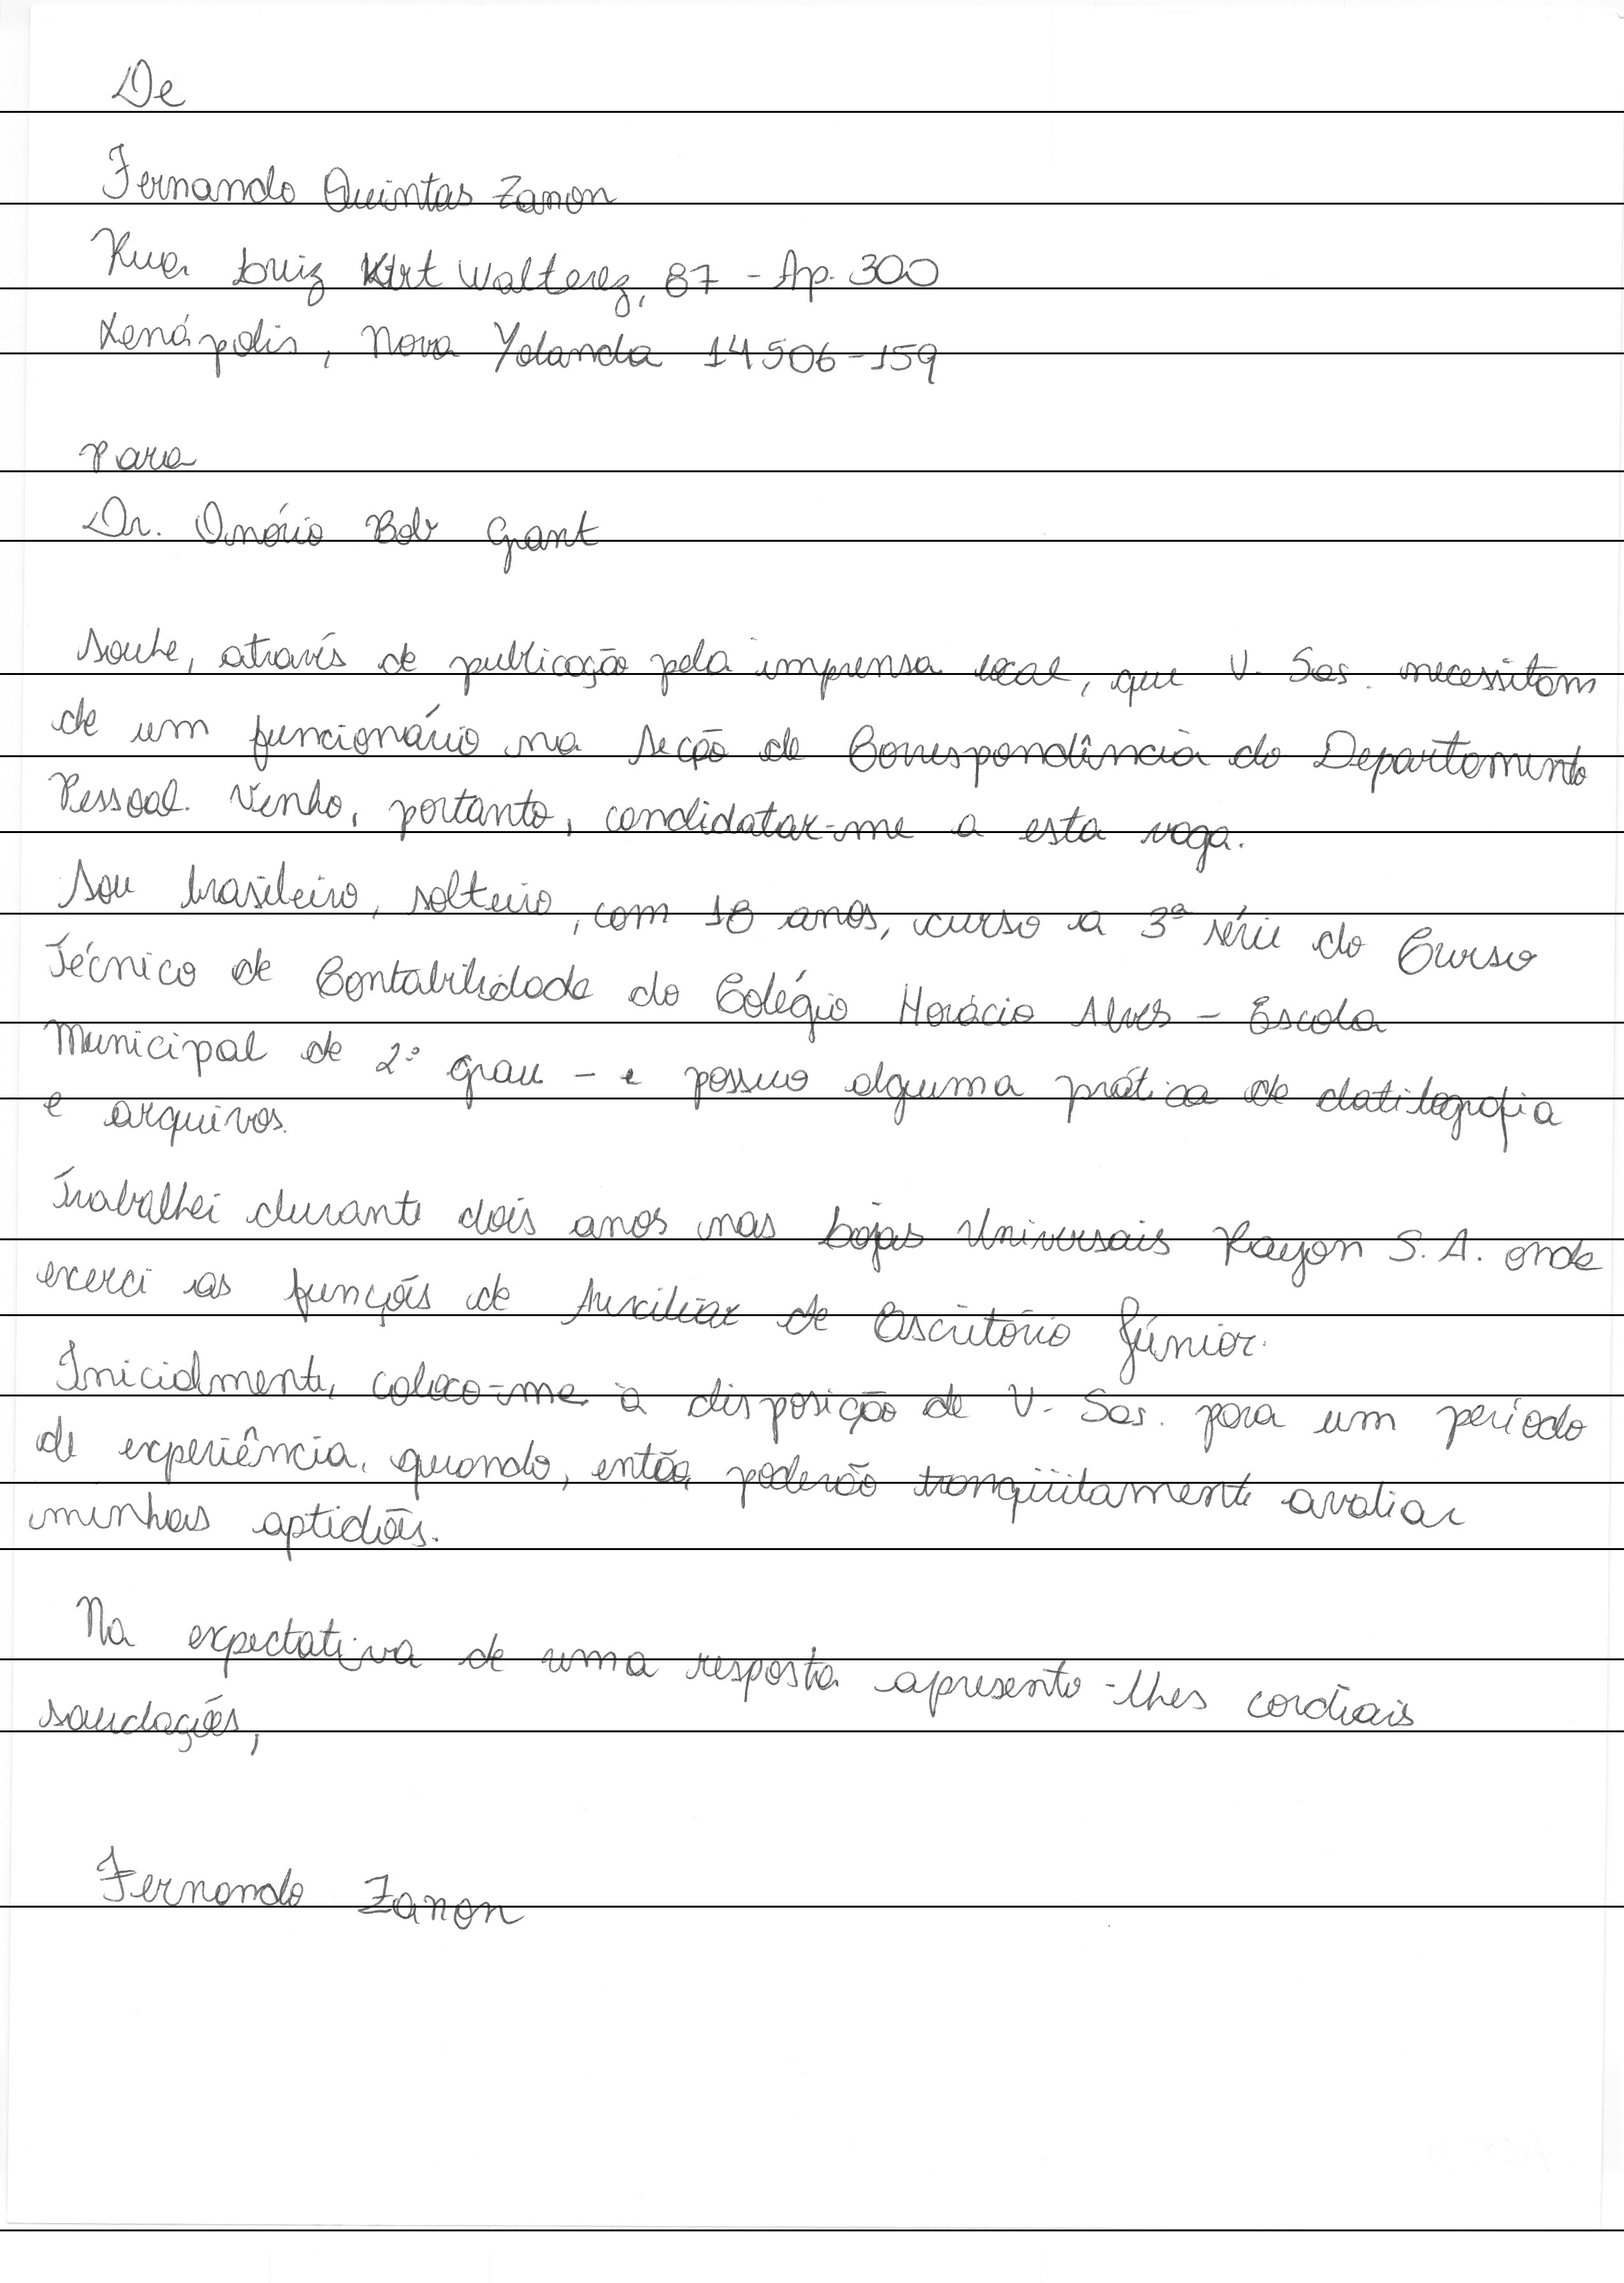 De
Fernando Quintas Zanon
Rua Luiz Kurt Walterez, 87 - Ap. 300
Xenópolis, Nova Yolanda 14506-159
Para
Dr. Onório Bob Grant
Soube, através de publicação pela imprensa local, que V. Sas. necessitam
de um funcionário na Secção de Correspondência do Departamento
Pessoal. Venho, portanto, candidatar-me a esta vaga.
Sou brasileiro, solteiro, com 18 anos, curso a 3ª série do Curso
Técnico de Contabilidade do Colégio Horácio Alves - Escola
Municipal de 2º grau - e possuo alguma prática de datilografia
e arquivos.
Trabalhei durante dois anos nas Lojas Universais Rayon S. A. onde
exerci as funções de Auxiliar de Escritório Júnior.
Inicialmente, coloco-me à disposição de V. Sas. para um período
de experiência, quando, então, poderão tranqüilamente avaliar
minhas aptidões.
Na expectativa de uma resposta apresento-lhes cordiais
saudações,
Fernando Zanon